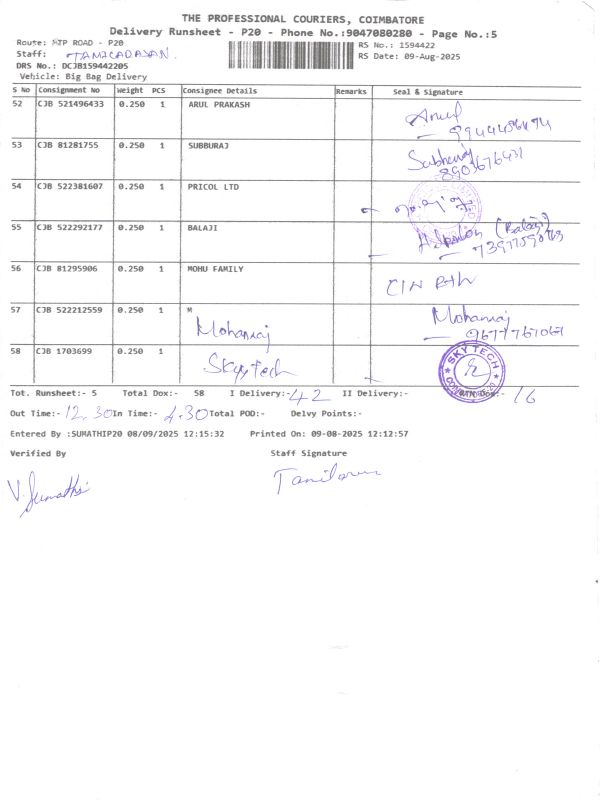 THE PROFESSIONAL COURIERS, COIMBATORE
Delivery Runsheet - P20 - Phone No.:9047080280 - Page No.:5
Route: MTP ROAD - P20
RS No.: 1594422
Staff: TAMILADASAN.
RS Date: 09-Aug-2025
DRS No.: DCJB159442205
Vehicle: Big Bag Delivery
S No Consignment No Weight PCS Consignee Details Remarks Seal & Signature
52 CJB 521496433 0.250 1 ARUL PRAKASH Arul
53 CJB 81281755 0.250 1 SUBBURAJ
8903676431
54 CJB 522381607 0.250 1 PRICOL LTD
55 CJB 522292177 0.250 1 BALAJI (Balaji)
56 CJB 81295906 0.250 1 MOHU FAMILY
57 CJB 522212559 0.250 1 M Mohanraj Mohanraj
58 CJB 1703699 0.250 1 Skyytech SKY TECH
Tot. Runsheet:- 5 Total Dox:- 58 I Delivery:- 42 II Delivery:- 16
Out Time:- 12.30 In Time:- 4.30 Total POD:- Delvy Points:-
Entered By :SUMATHIP20 08/09/2025 12:15:32 Printed On: 09-08-2025 12:12:57
Verified By Staff Signature
V. Sumathi